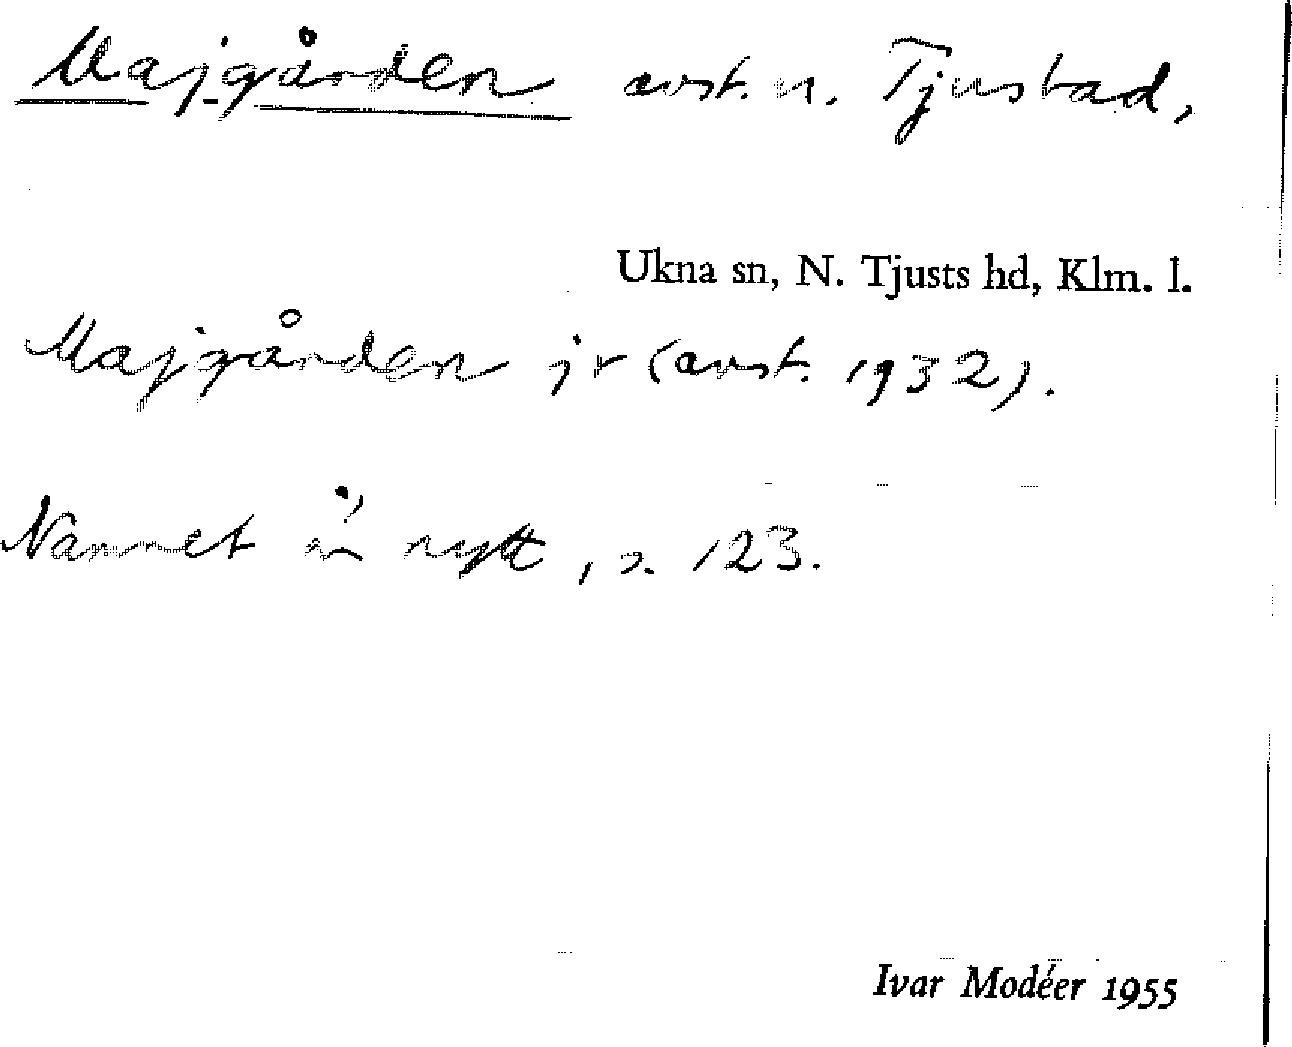 Majgården avst. u. Tjustad,
Ukna sn, N. Tjusts hd, Klm. l.
Majgården jr (avst. 1932).
Namnet är nytt, s. 123.
Ivar Modéer 1955